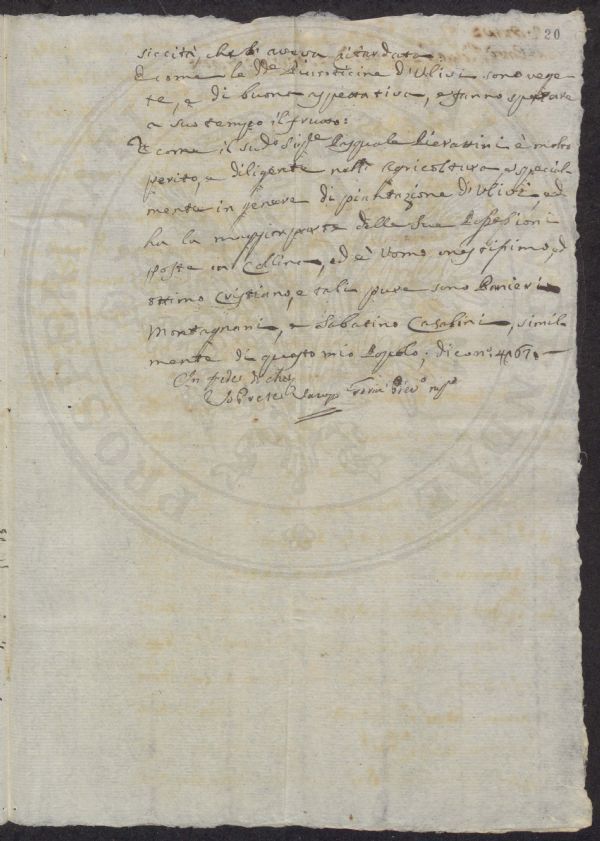 20
siccità, che le aveva ritardate.
E come le dde Piscoticine d'Ulivi sono vege=
te, e di buona aspettativa, e fanno sperare
a suo tempo il frutto:
E come il sudo Sigre Pasquale Pierattini è molto
perito, e diligente nell' agricoltura e special=
mente in genere di piantazione d'Ulivi, ed
ha la maggior parte delle sue Possessioni
poste in Collina, ed è Uomo onestissimo, ed
ottimo Cristiano, e tali pure sono Ranieri
Montagnani, e Sabatino Casalini, simil=
mente di questo mio Popolo; dico n.
In fede di che
Io Prete